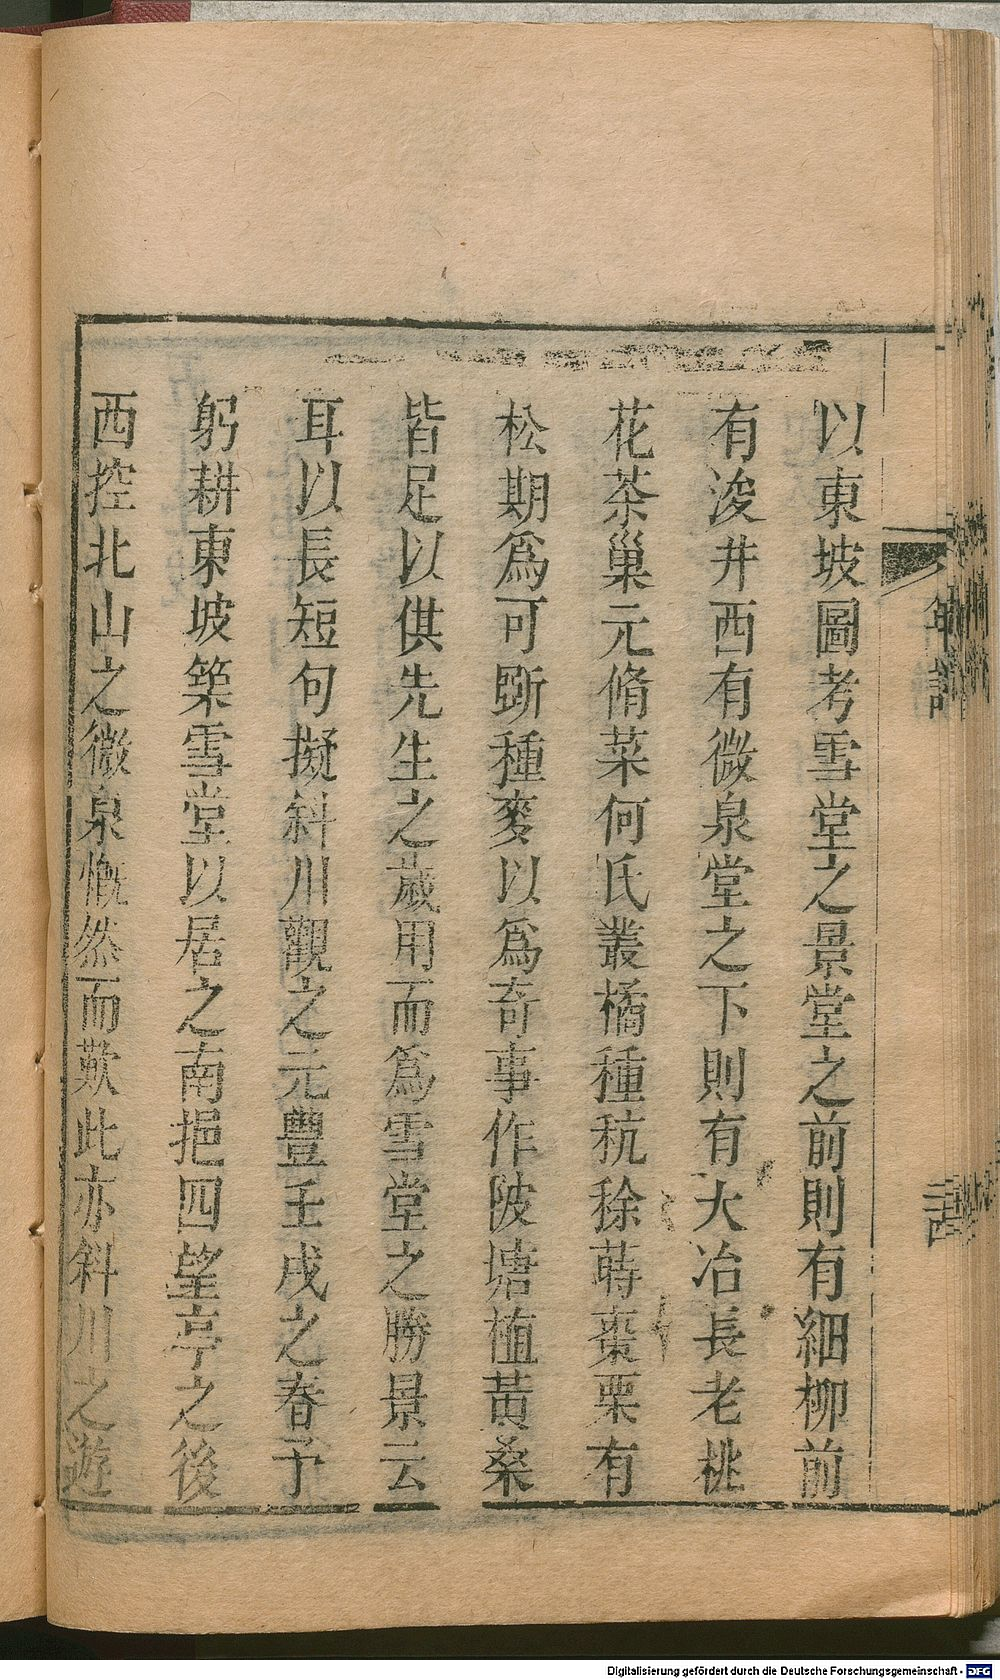 以東坡圖考雪堂之景堂之前則有細柳前
有浚井西有微泉堂之下則有大冶長老桃
花茶巢元脩菜何氏叢橘種秔稌蒔棗栗有
松期爲可斵種麥以爲奇事作陂塘植黃桑
皆足以供先生之歲用而爲雪堂之勝景云
耳以長短句擬斜川觀之元豐壬戌之春予
躬耕東坡築雪堂以居之南挹四望亭之後
西控北山之微泉慨然而歎此亦斜川之遊
年譜
Digitalisierung gefördert durch die Deutsche Forschungsgemeinschaft - DFG